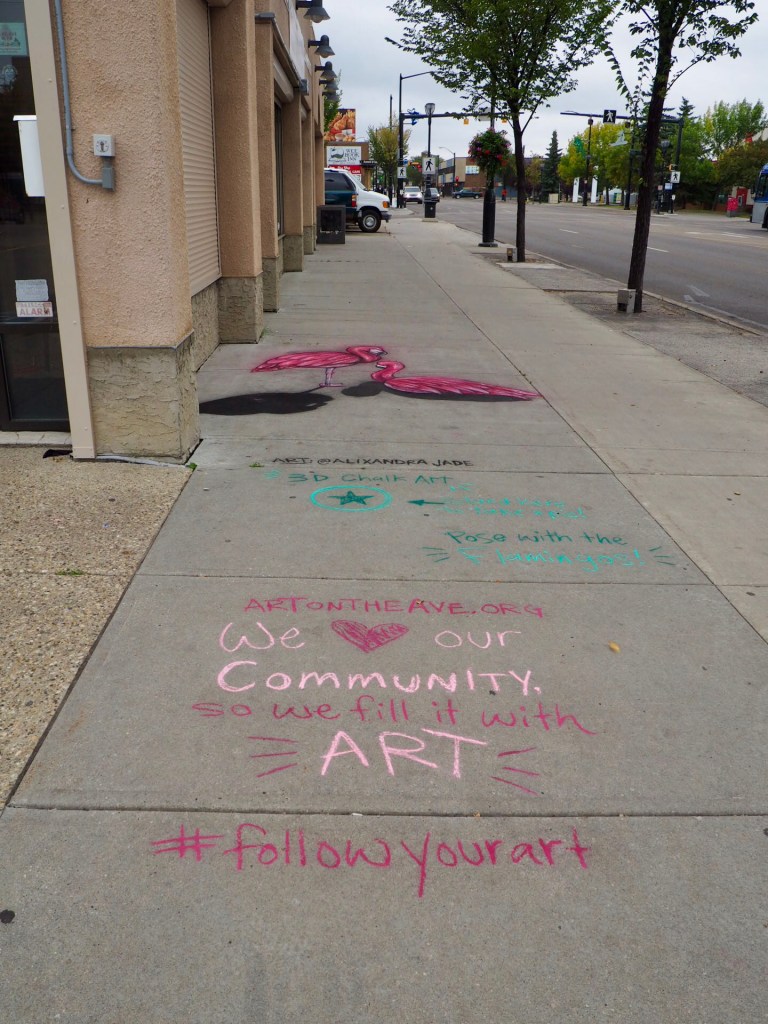 ALAR
ART: @ALIXANDRA.JADE
3D Chalk Art
Pose with the
flamingos!
ARTONTHEAVE.ORG
We our
COMMUNITY.
so we fill it with
ART
#followyourart